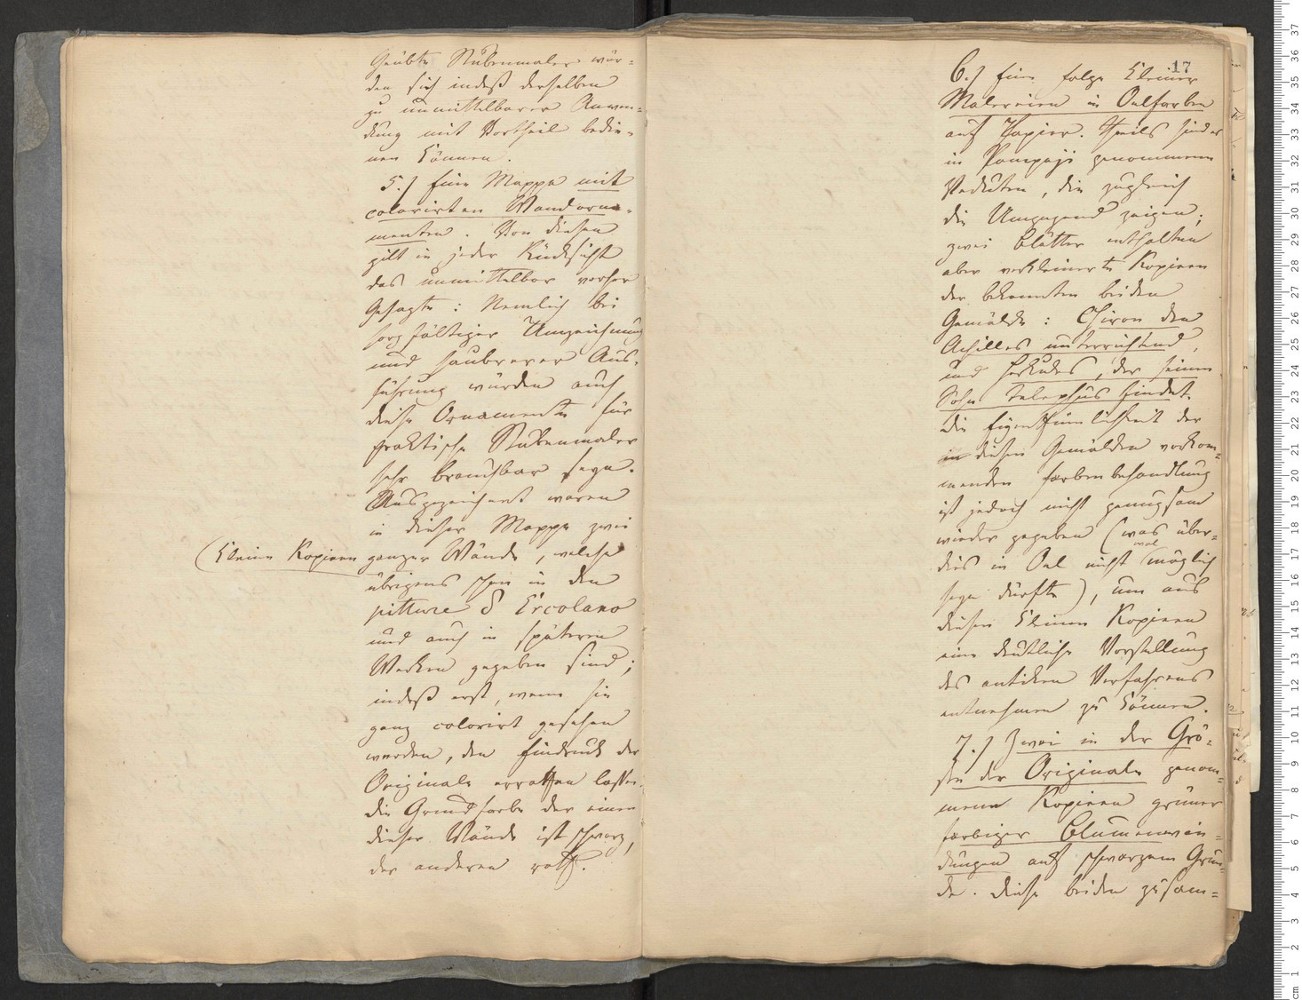 Geübte Stubenmaler wür-
den sich indeß derselben
zu unmittelbarer Anwen-
dung mit Vortheil bedie-
nen können.
5.) Eine Mappe mit
colorirten Wandorna-
menten. Von diesen
gilt in jeder Rücksicht
das unmittelbar vorher
Gesagte: Nemlich bei
sorgfältiger Umzeichnung
und sauberer Aus-
führung würden auch
diese Ornamente für
praktische Stubenmaler
sehr brauchbar seyn.
Ausgezeichnet waren
in dieser Mappe zwei
(kleine Kopieen ganzer Wände, welche
übrigens schon in den
pitture d'Ercolano
und auch in späteren
Werken gegeben sind;
indeß erst, wenn sie
ganz colorirt gesehen
werden, den Eindruck der
Originale errathen lassen.
Die Grundfarbe der einen
dieser Wände ist schwarz,
der anderen roth.
17
6.) Eine Folge kleiner
Malereien in Oelfarben
auf Papier. Theils sind es
in Pompeji genommene
Veduten, die zugleich
die Umgegend zeigen;
zwei Blätter enthalten
aber verkleinerte Kopieen
der bekannten beiden
Gemälde: Chiron den
Achilles unterrichtend,
und Herkules, der seinen
Sohn Telephus findet.
Die Eigenthümlichkeit der
in diesen Gemälden vorkom-
menden Farbenbehandlung
ist jedoch nicht genugsam
wieder gegeben (was über-
dies in Oel nicht wol möglich
seyn dürfte), um aus
diesen kleinen Kopieen
eine deutliche Vorstellung
des antiken Verfahrens
entnehmen zu können.
7.) Zwei in der Grö-
ße der Originale genom-
mene Kopieen grüner
farbiger Blumenwin-
dungen auf schwarzem Grun-
de. Diese beiden zusam-